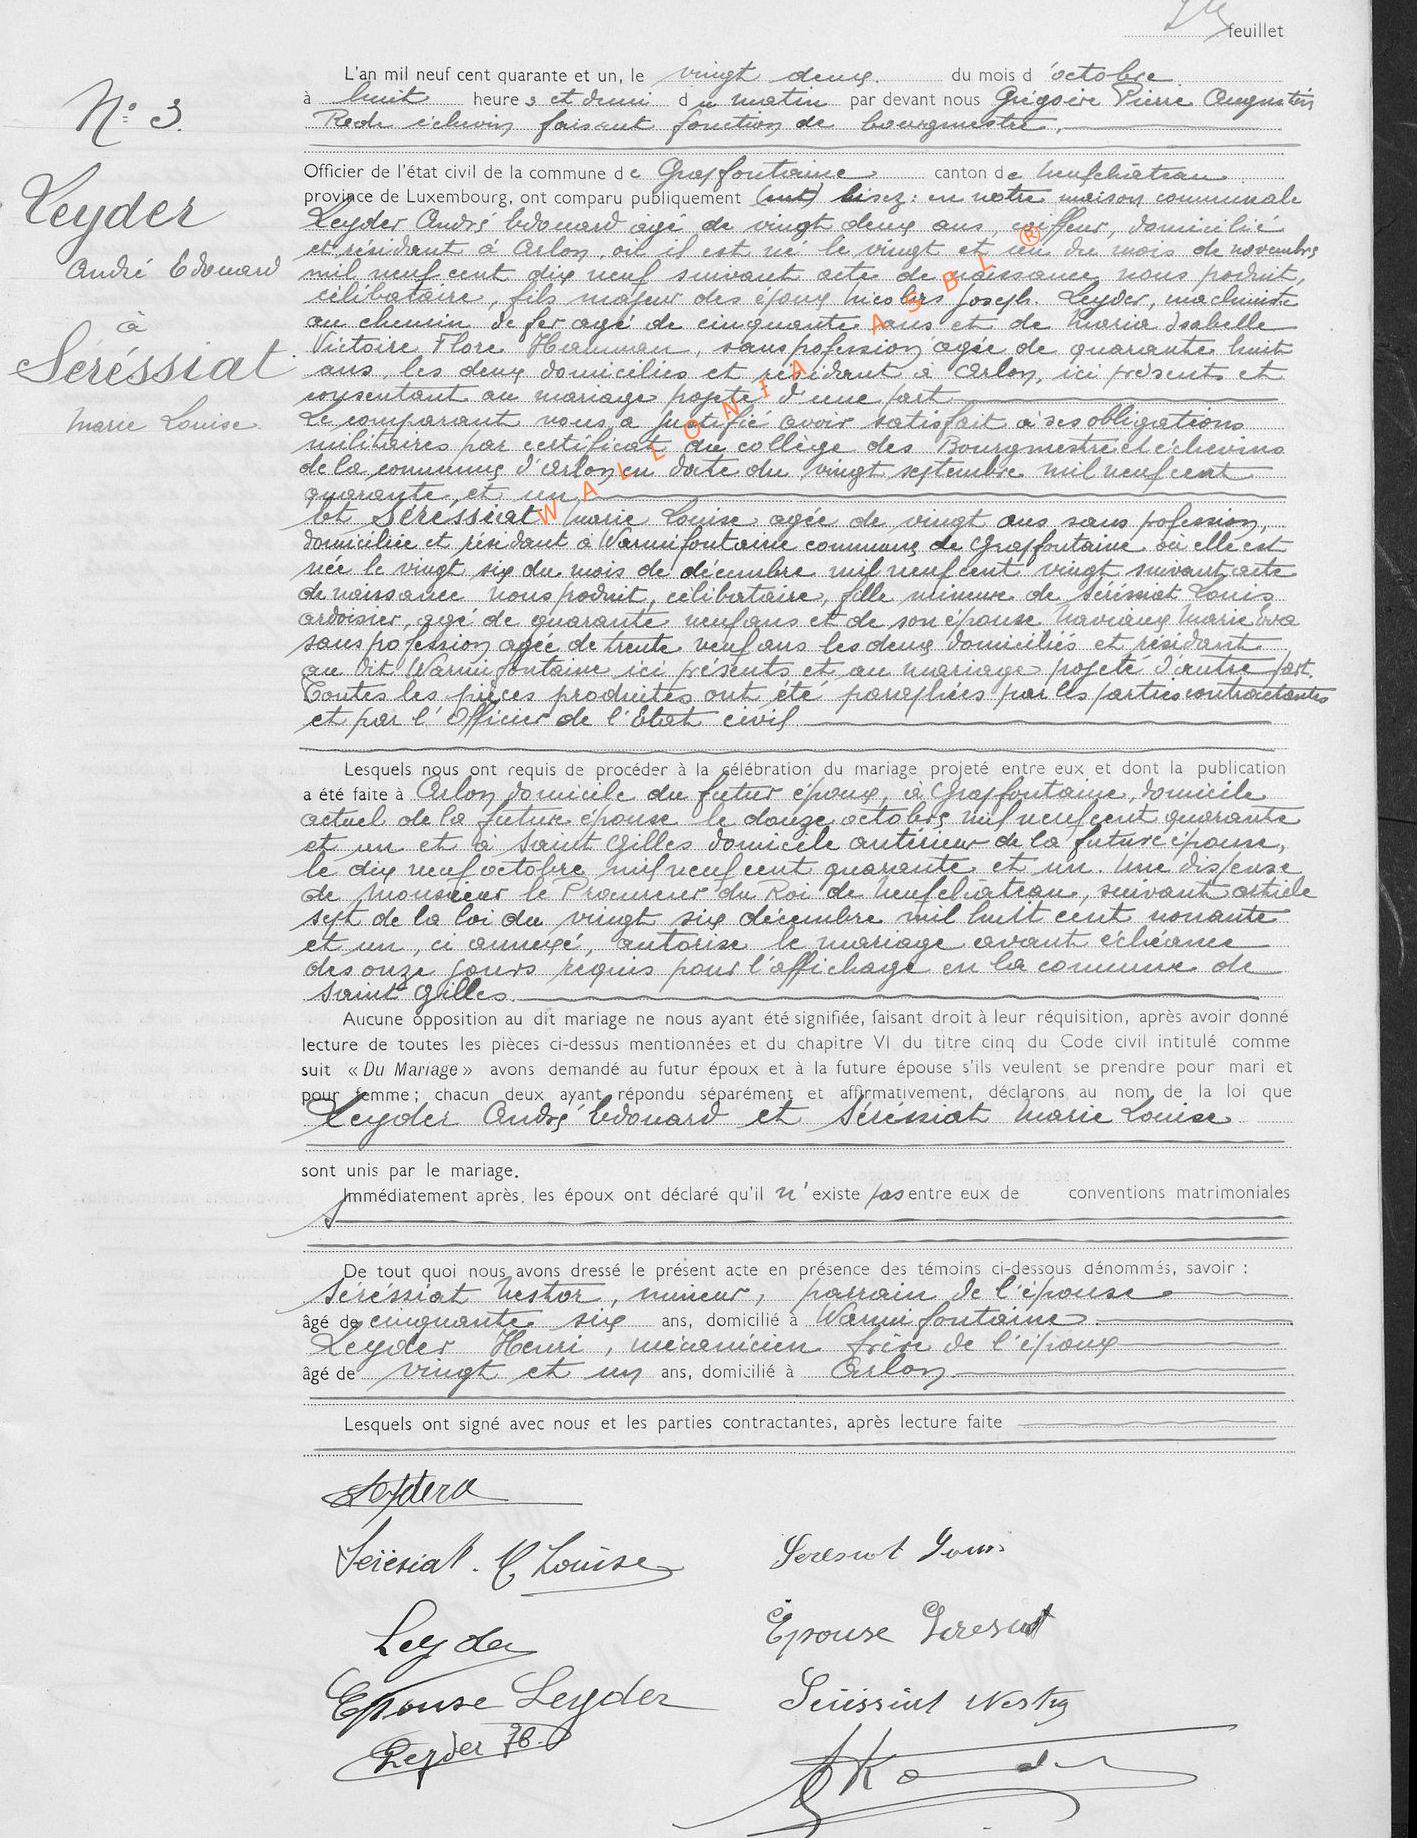 feuillet
L'an mil neuf cent quarante et un, le vingt deux du mois d'octobre
à huit heures et demi du matin par devant nous Grégoire Pierre Augustin
échevin faisant fonction de bourgmestre,
Officier de l'état civil de la commune de Grapfontaine canton de Neufchâteau
province de Luxembourg, ont comparu publiquement (mt) lisez: en notre maison communale
N° 3.
Leyder
André Edouard
à
Séréssiat
Marie Louise
Leyder André Edouard agé de vingt deux ans, coiffeur, domicilié
et résidant à Arlon, où il est né le vingt et un du mois de novembre
mil neuf cent dix neuf suivant acte de naissance nous produit,
célibataire, fils majeur des époux Nicolas Joseph Leyder, machiniste
au chemin de fer agé de cinquante ans et de Maria Isabelle
Victoire Flore Hamman, sans pofession agée de quarante huit
ans, les deux domiciliés et résidant à Arlon, ici présents et
consentant au mariage projeté d'une part
Le comparant nous a justifié avoir satisfait à ses obligations
militaires par certificat du collège des Bourgmestre et échevins
de la commune d'Arlon en date du vingt septembre mil neuf cent
quarante et un
Et Séréssiat Marie Louise agée de vingt ans sans pofession,
domiciliée et résidant à Warmifontaine commune de Grapfontaine où elle est
née le vingt six du mois de décembre mil neuf cent vingt suivant acte
de naissance nous produit, célibataire, fille mineure de Séréssiat Louis
ardoisier, agé de quarante neuf ans et de son épouse Naviaux Marie Eva
sans pofession agée de trente neuf ans les deux domiciliés et résidant
au dit Warmifontaine ici présents et au mariage projeté d'autre part.
Toutes les pièces produites ont été paraphées par les parties contractantes
et par l'Officier de l'Etat civil
WALLONIA ASBL ®
Lesquels nous ont requis de procéder à la célébration du mariage projeté entre eux et dont la publication
a été faite à Arlon domicile du futur époux, à Grapfontaine, domicile
actuel de la future épouse le douze octobre mil neuf cent quarante
et un et à Saint Gilles domicile antérieur de la future épouse,
le dix neuf octobre mil neuf cent quarante et un. Une dispense
de Monsieur le Procureur du Roi de Neufchâteau, suivant article
sept de la loi du vingt six décembre mil huit cent nonante
et un, ci annexé, autorise le mariage avant échéance
des onze jours requis pour l'affichage en la commune de
Saint Gilles.
Aucune opposition au dit mariage ne nous ayant été signifiée, faisant droit à leur réquisition, après avoir donné
lecture de toutes les pièces ci-dessus mentionnées et du chapitre VI du titre cinq du Code civil intitulé comme
suit « Du Mariage » avons demandé au futur époux et à la future épouse s'ils veulent se prendre pour mari et
pour femme ; chacun deux ayant répondu séparément et affirmativement, déclarons au nom de la loi que
Leyder André Edouard et Séréssiat Marie Louise
sont unis par le mariage.
Immédiatement après, les époux ont déclaré qu'il n'existe pas entre eux de conventions matrimoniales
De tout quoi nous avons dressé le présent acte en présence des témoins ci-dessous dénommés, savoir :
Séréssiat Nestor, mineur, parrain de l'épouse
âgé de cinquante six ans, domicilié à Warmifontaine
Leyder Henri, mécanicien frère de l'époux
âgé de vingt et un ans, domicilié à Arlon
Lesquels ont signé avec nous et les parties contractantes, après lecture faite
Seréssiat. M Louise
Leyder
Epouse Leyder
Leyder
Epouse
Nestor